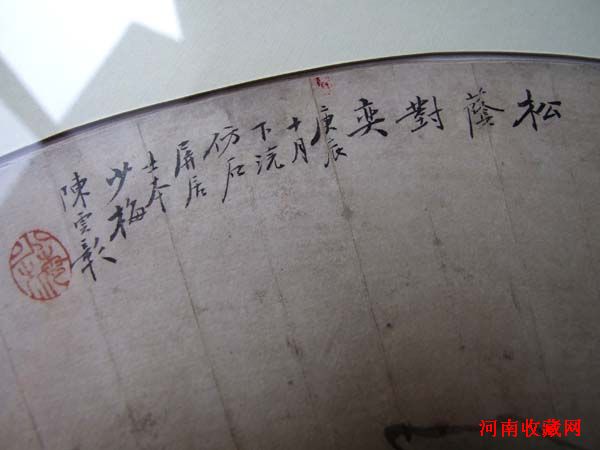 松
蔭
對
奕
庚辰
十月
下浣
仿石
屏居
士本
少梅
陳雲彰
河南收藏网